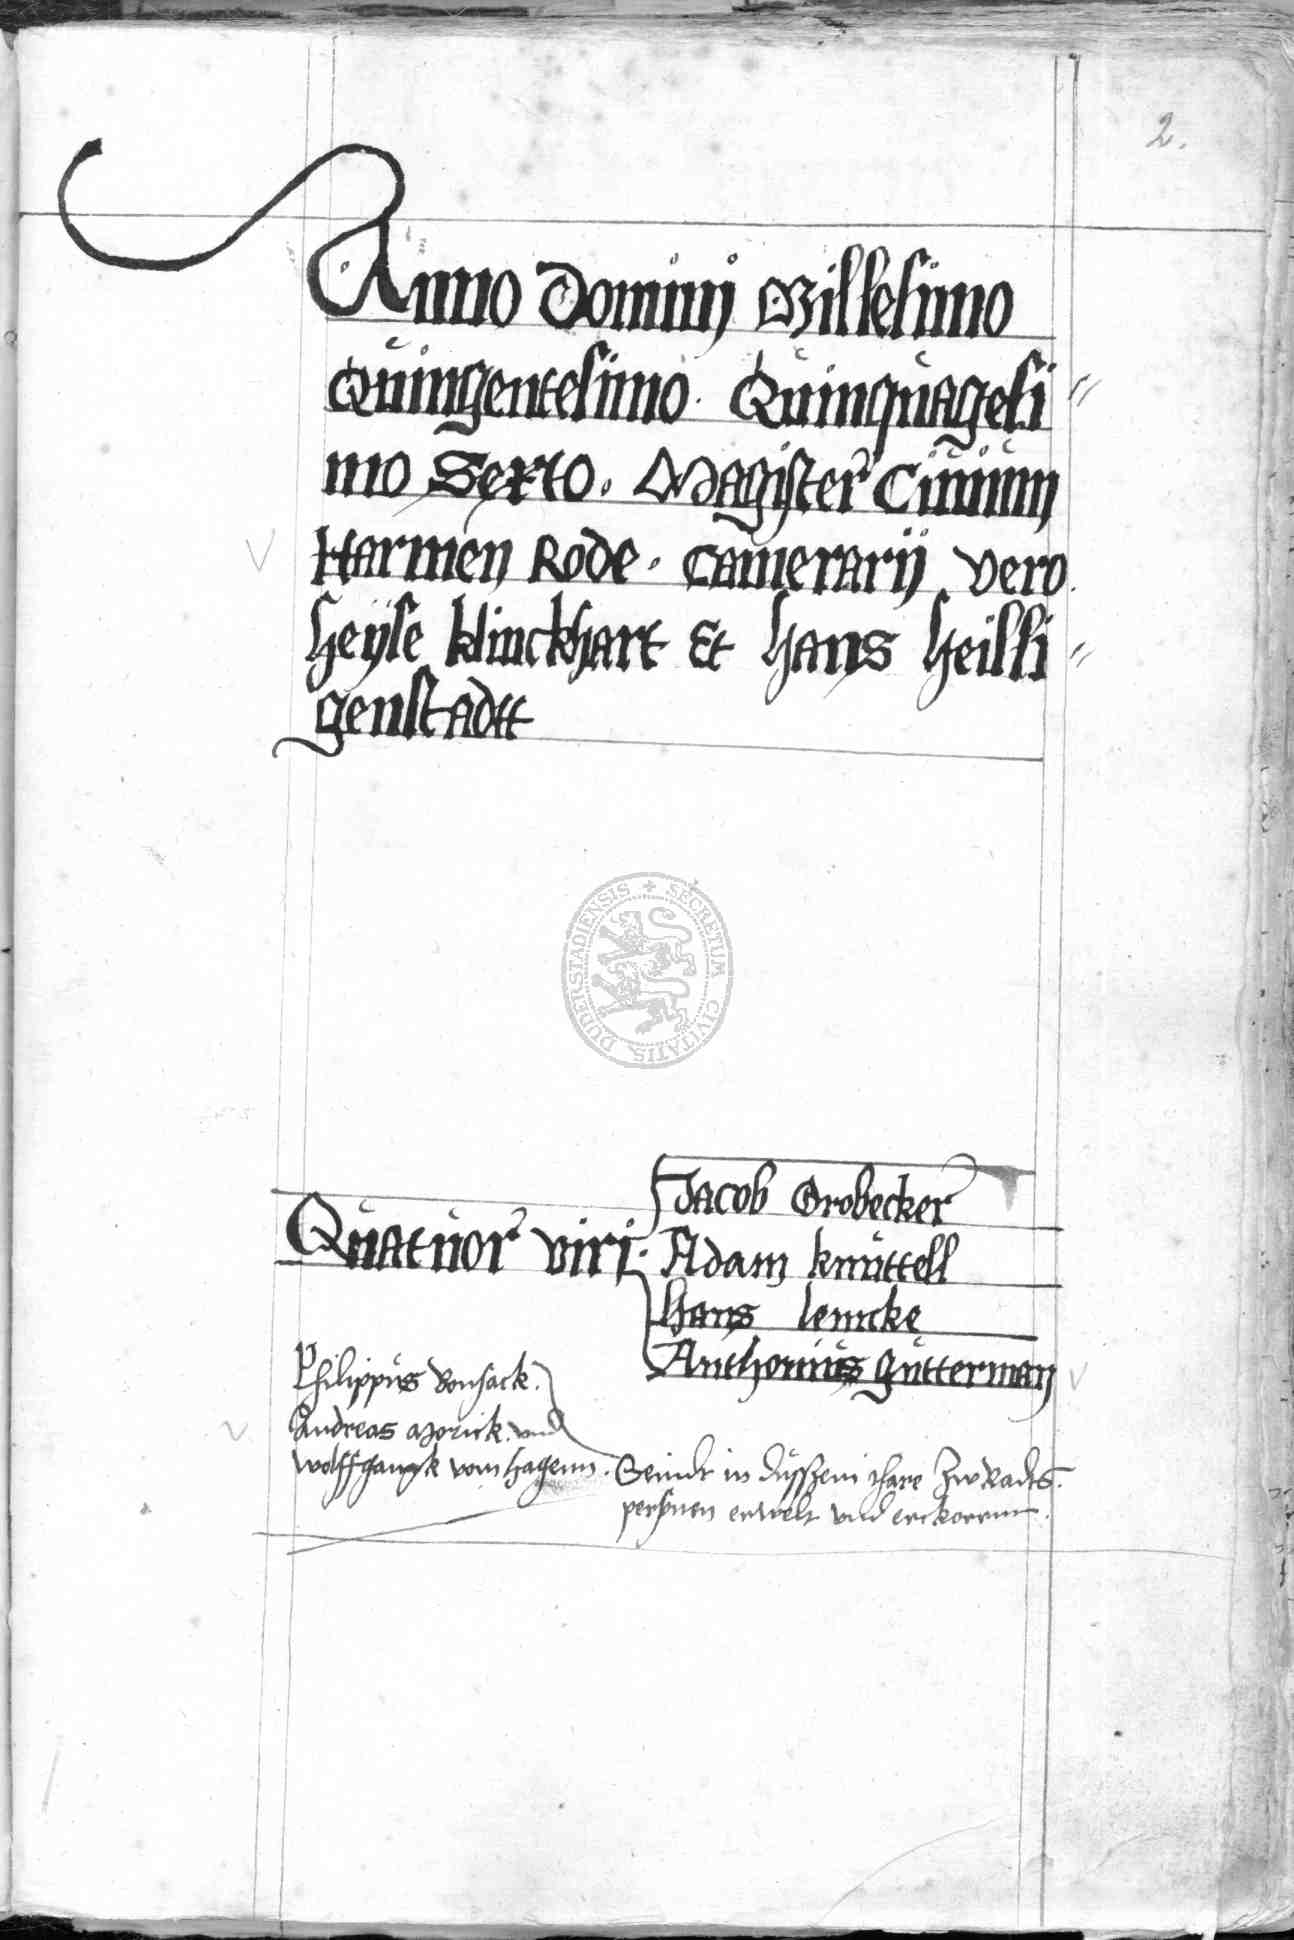 2.
Anno Dominj Millesimo
Quingentesimo. Quinquagesi〃
mo Sexto. Magister Ciuium
Harmen Rode. Camerarij vero
Heÿse klinckhart Et Hans Heilli〃
genstadtt
SECRETUM CIVITATIS DUDERSTADIENSIS
Quatuor viri.
Jacob Grobecker
Adam knuttell
Hans lemcke
Anthonius gutterman
Philippus Bonsack.
Andreas und
Wolffgangk vom Hagenn.
Seindt in dusszem ihare zw Radts
personen erwelt vnd erckorenn.